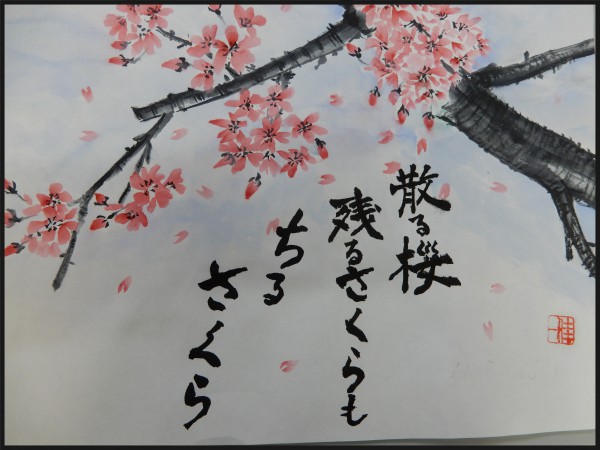 散る桜
残るさくらも
ちる
さくら